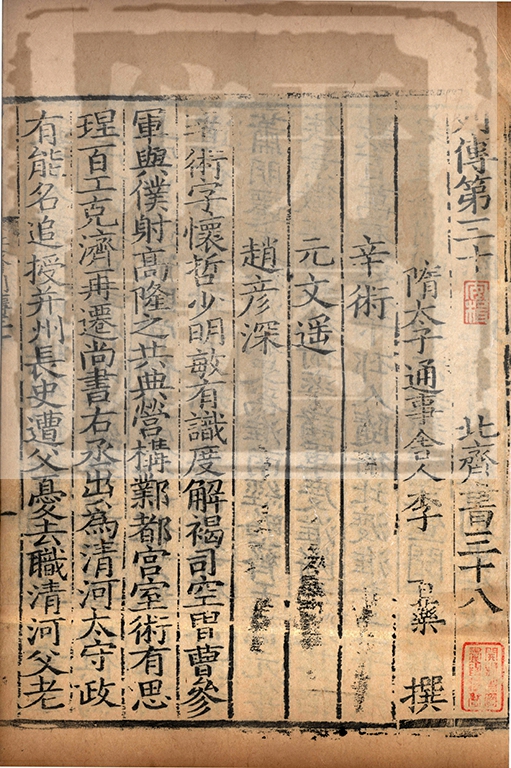 列傳第三十 北齊書三十八
隋太子通事舍人李 百藥 撰
辛術
元文遥
趙彦深
辛術字懷哲少明敏有識度解褐司空胄曹參
軍與僕射髙隆之共典營構鄴都宫室術有思
理百工克濟再遷尚書右丞出爲清河太守政
有能名追授并州長史遭父憂去職清河父老